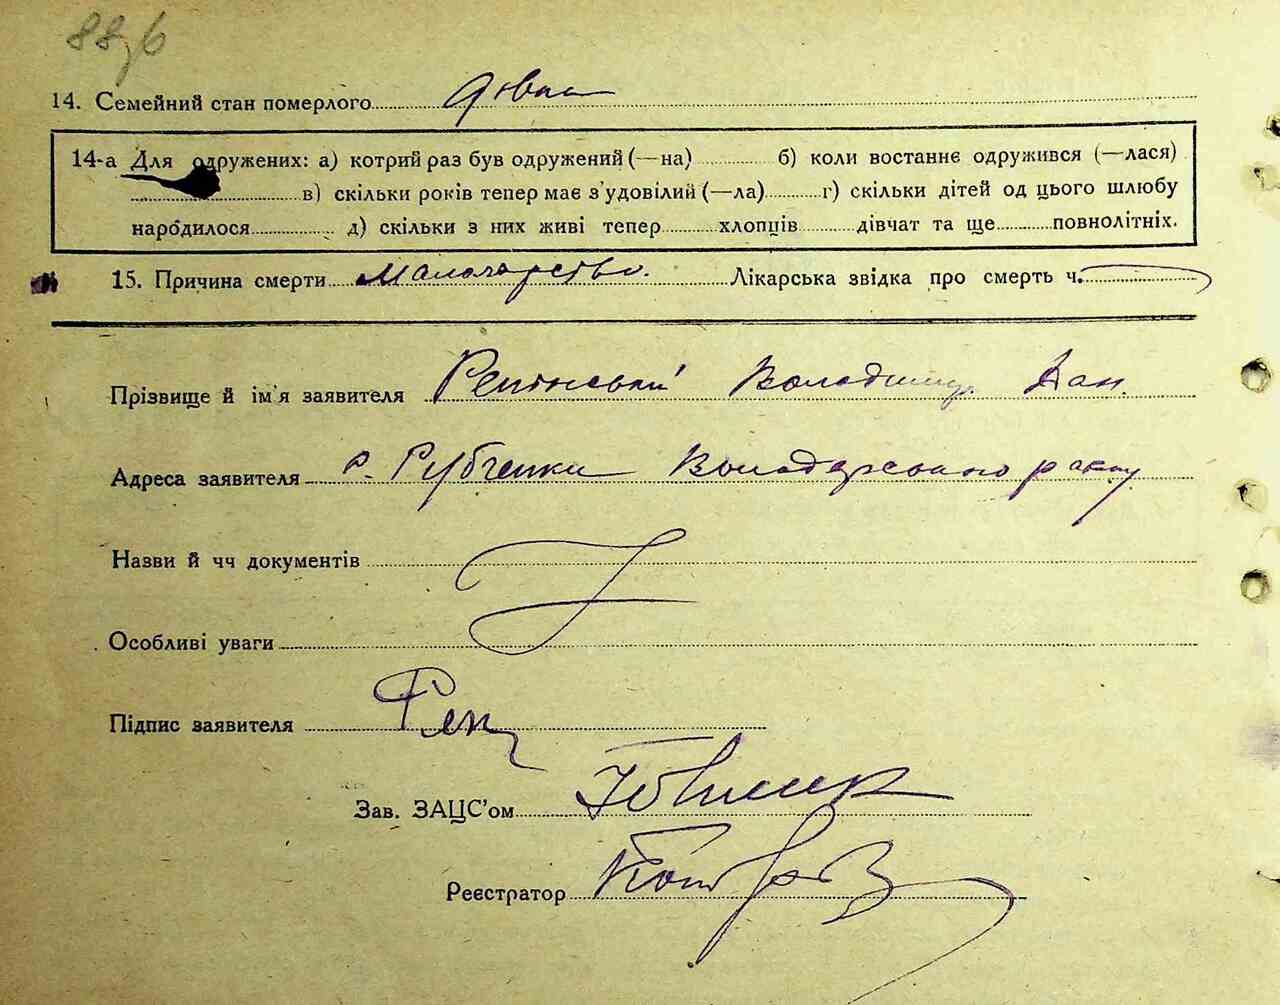 88зв
14. Семейний стан померлого
14-а Для одружених: а) котрий раз був одружений (—на) б) коли востаннє одружився (—лася)
в) скільки років тепер має з'удовілий (—ла) г) скільки дітей од цього шлюбу
народилося д) скільки з них живі тепер хлопців дівчат та ще повнолітніх.
15. Причина смерти Малокровство. Лікарська звідка про смерть ч.
Прізвище й ім'я заявителя Репінський Володимир Дан.
Адреса заявителя с. Рубченки Володарського району
Назви й чч документів
Особливі уваги
Підпис заявителя Реп
Зав. ЗАЦС'ом
Реєстратор